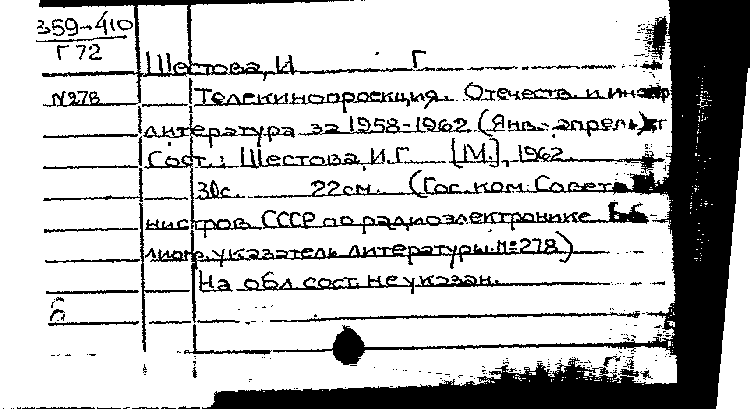 359-410
Г 72
Шестова, И Г
№278
Телекинопроекция. Отечеств. и иностр
литература за 1958-1962 (Янв.-апрель) гг
Сост.: Шестова, И.Г. [М.], 1962.
30с. 22см. (Гос. ком. Совета Ми
нистров СССР по радиоэлектронике Биб
лиогр. указатель литературы. №278)
На обл сост. не указан.
б